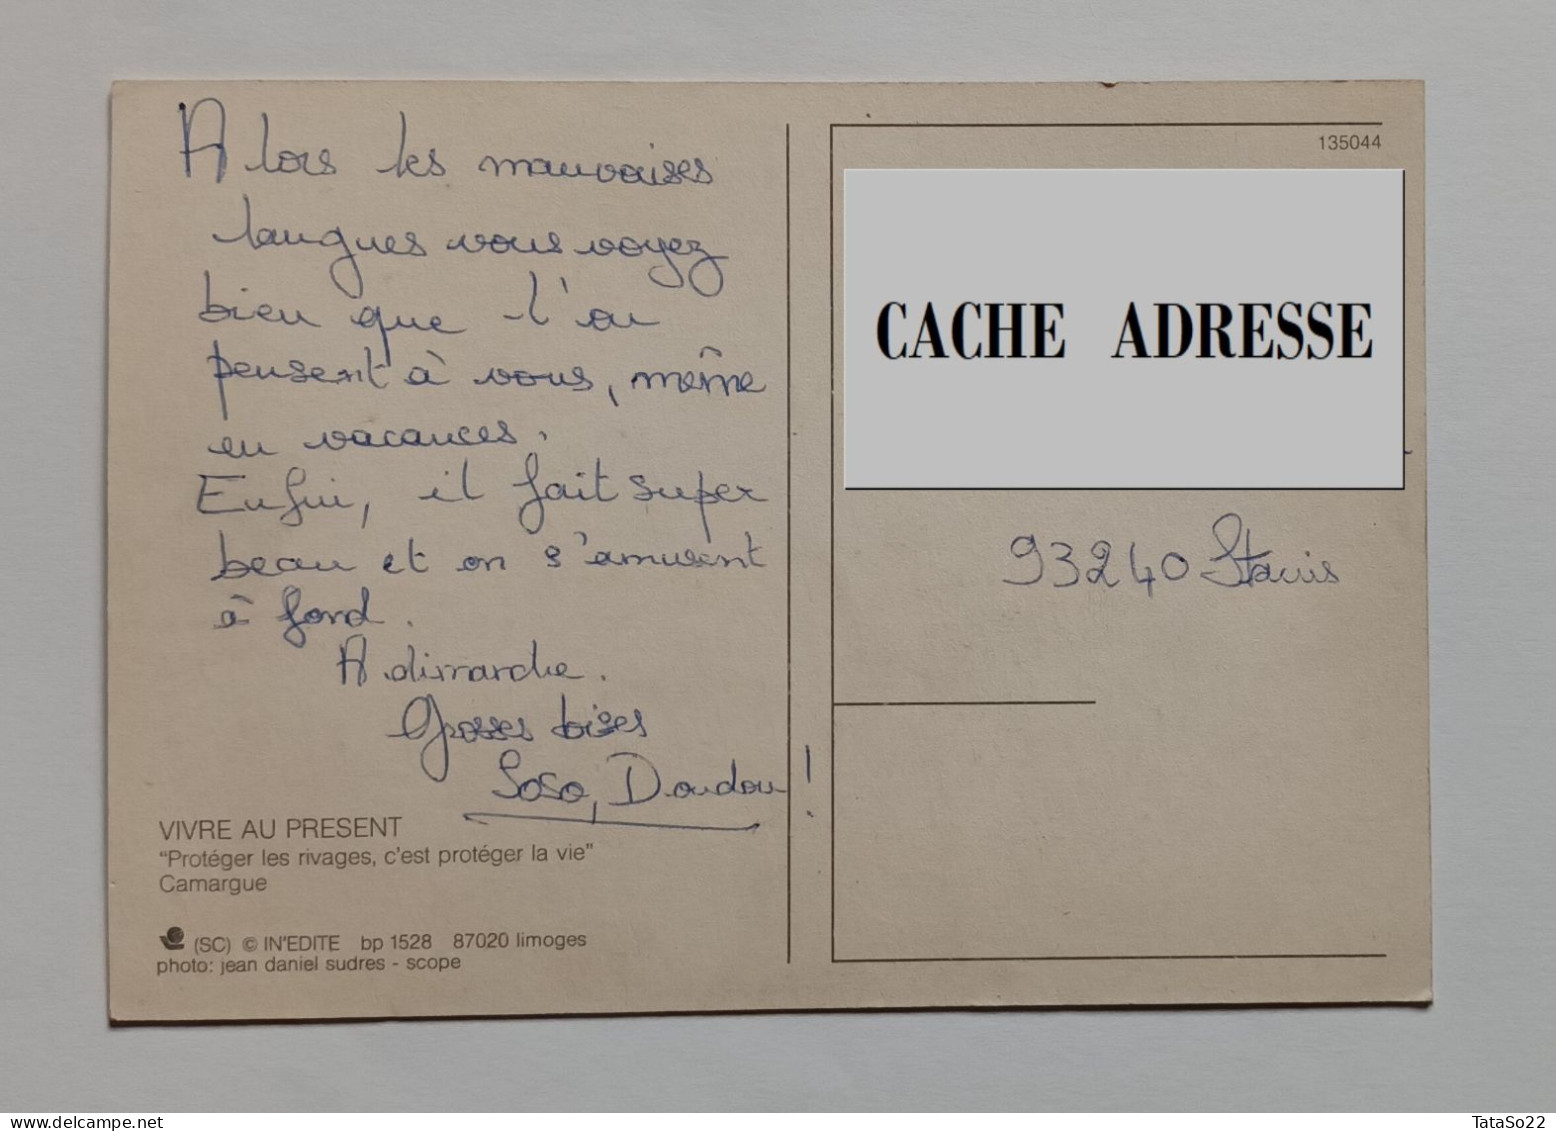 Alors les mauvaises
langues vous voyez
bien que l'on
pensent à vous, même
en vacances.
Enfin, il fait super
beau et on s'amusent
à fond.
A dimanche.
Grosses bises
Soso, Doudou !
VIVRE AU PRESENT
"Protéger les rivages, c'est protéger la vie"
Camargue
(SC) © IN'EDITE bp 1528 87020 limoges
photo: jean daniel sudres - scope
135044
CACHE ADRESSE
93240 Stains
delcampe.net
TataSo22